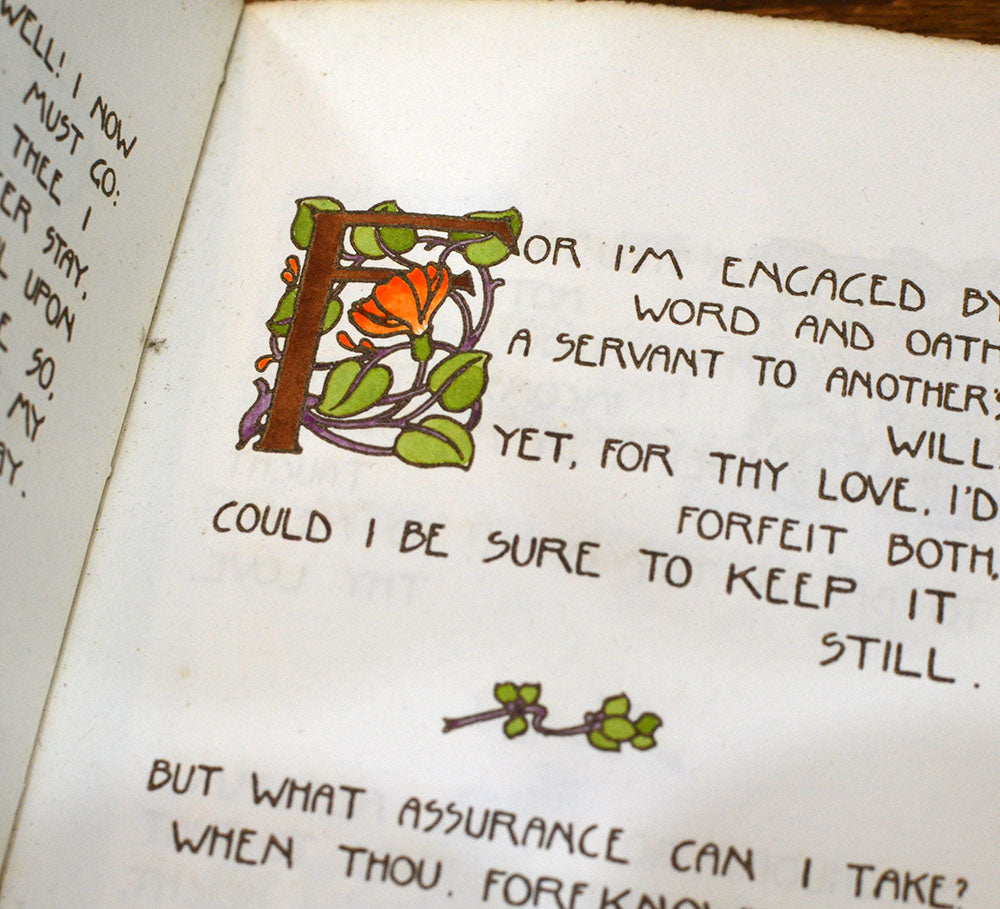 WELL! I NOW
MUST GO:
THEE I
STAY,
UPON
SO,
MY
FOR I'M ENGAGED BY
WORD AND OATH
A SERVANT TO ANOTHER'S
WILL:
YET, FOR THY LOVE, I'D
FORFEIT BOTH,
COULD I BE SURE TO KEEP IT
STILL.
BUT WHAT ASSURANCE CAN I TAKE?
WHEN THOU,